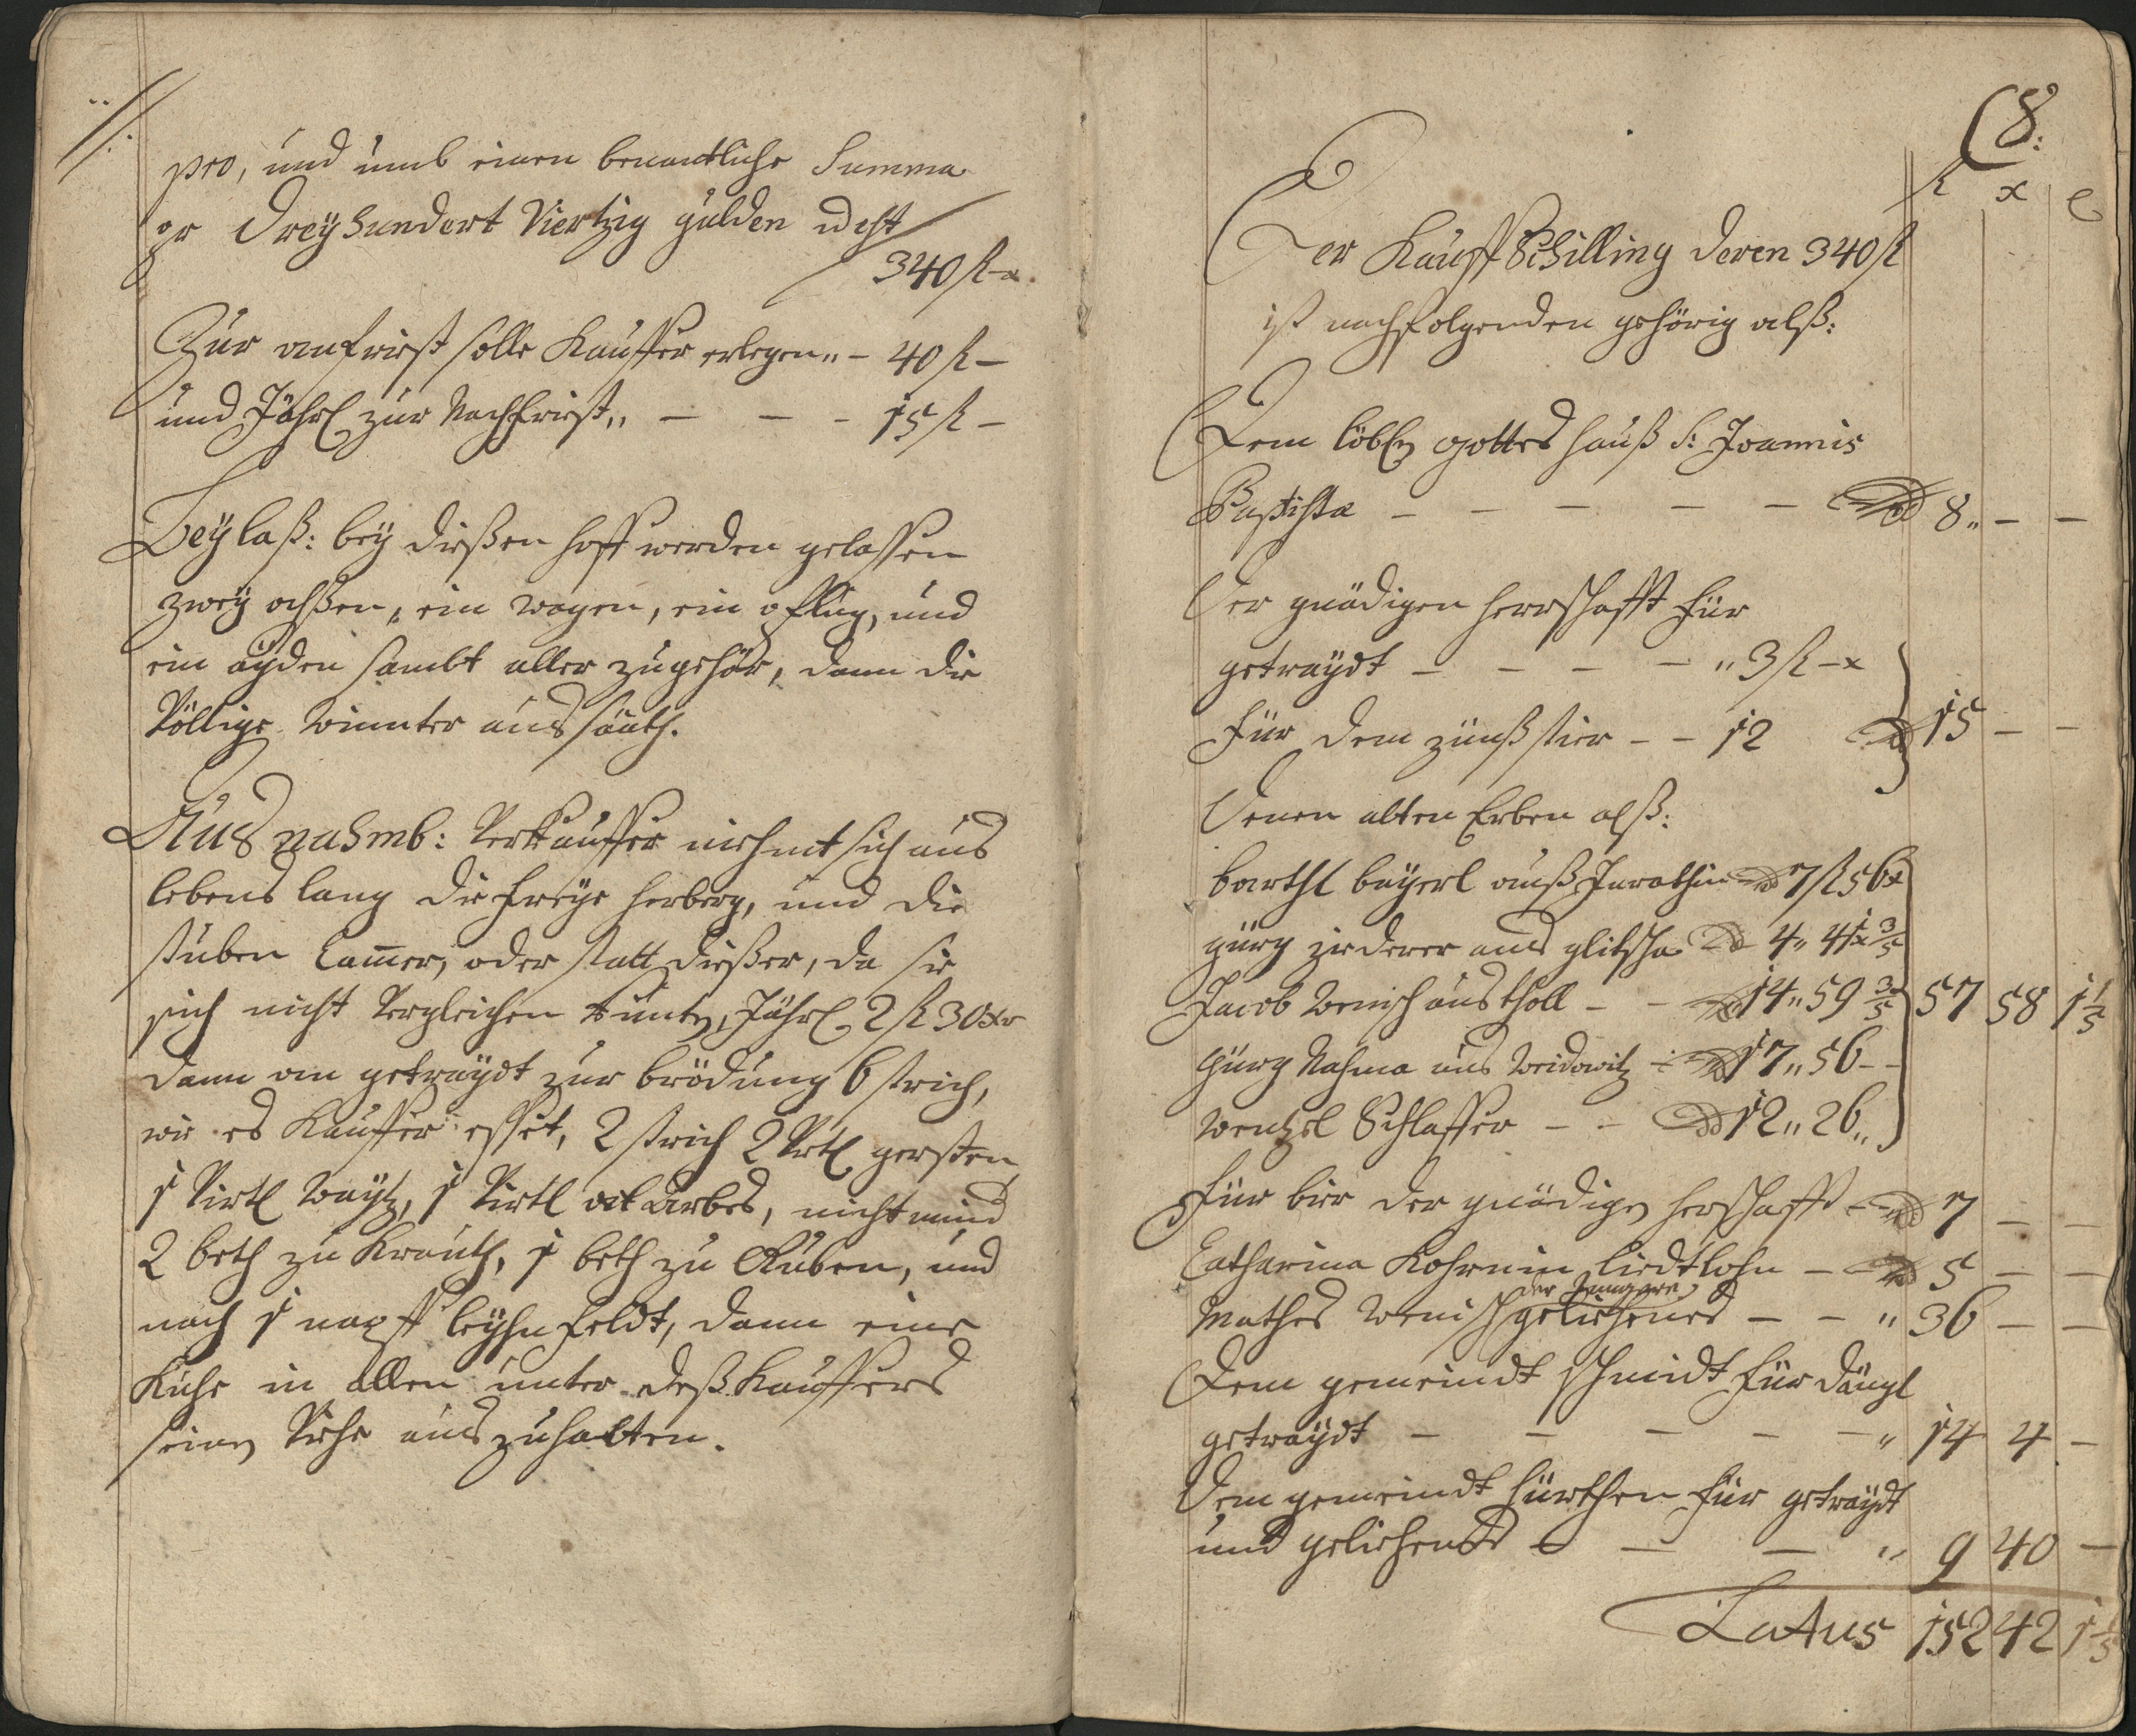 pro, und umb einen benantliche Summa
pr Dreyhundert Viertzig gulden id est
340 fl - x.
Zur anfrist solle Kauffer erlegen „ - 40 fl -
und Jährl zur Nachfrist „ - - - 15 fl -
Beylaß: bey dießen hoff werden gelassen
zwey ochßen, ein wagen, ein pflug, und
ein ayden sambt aller zugehör, dann die
Völlige Winnter aussaath.
Ausnahmb: Verkauffer niehmt sich aus
lebens lang die freye herberg, und die
stuben Cam̄er, oder statt dießer, da sie
sich nicht Vergleichen kunten, Jährl 2 fl 30 xr
dann an getraydt zur brödung 6 strich,
wie es Kauffer esset, 2 strich 2 Vrtl gersten
1 Virtl waytz, 1 Virtl arbes, nicht mind
2 beth zu Krauth, 1 beth zu Ruben, und
nach 1 napff leyhn feldt, dann eine
Kuhe in allen unter deß Kauffers
seinen Viehe auszuhalten.
(8:
fl x
Der Kauff Schilling deren 340 fl
ist nachfolgenden gehörig alß:
Dem löbln gottes hauß S: Joannis
Baptista - - - - - 8 „ - -
Der gnädigen herrschafft für
getraydt - - - - „ 3 fl - x
für dem zünßstier - - 12 15 - -
Denen alten Erben alß:
barthl bayerl auß 7 fl 56 x
gürg ziederer aus glitscha 4 „ 41 x 3/5
Jacob Wenisch aus tholl - - 14 „ 59 3/5 57 58 1 1/5
Gürg Nahma aus Weidowitz - 17 „ 56 - -
Wentzel Schlaffer - - 12 „ 26 „
für bier der gnädigen herschafft - 7 - -
Catharina Kohrnin liedtlohn - 5 - -
der jüngere
Mathes Wenisch geliehenes - - „ 36 - -
Dem gemeindt schmidt für dängl
getraydt - - - - - „ 14 4 -
Dem gemeindt hürthen für getraydt
und geliehenes - - - „ 9 40 -
Latus 152 42 1 1/5